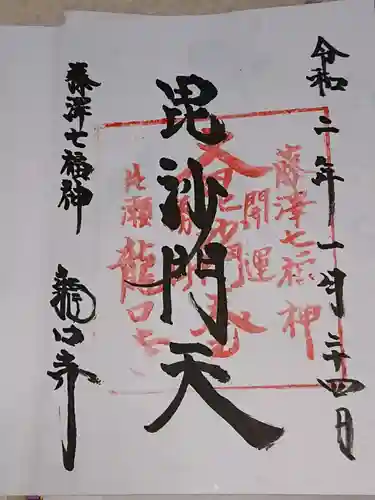 令和二年一月二十四日
毘沙門天
藤澤七福神
龍口寺
藤澤七福神
開運
片瀬龍口寺